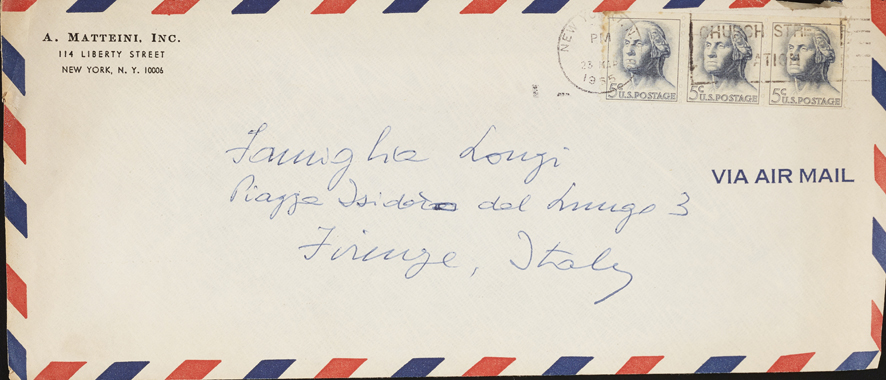 A. MATTEINI, INC.
114 LIBERTY STREET
NEW YORK, N. Y. 10006
NEW YORK, N.Y.
PM
23 MAR
CHURCH STRE
ATION
5¢ U.S.POSTAGE
5¢ U.S.POSTAGE
5¢ U.S.POSTAGE
VIA AIR MAIL
Famiglia Longi
Piazza Isidoro del Lungo 3
Firenze, Italy